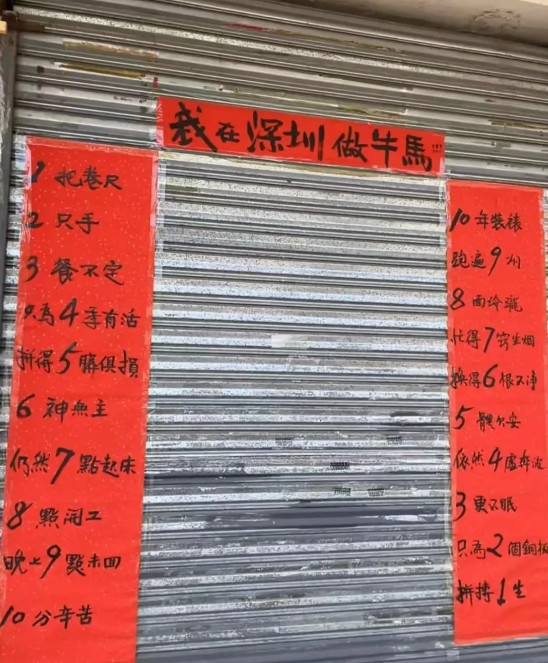 我在深圳做牛馬!!!
1 把卷尺
2 只手
3 餐不定
只為4季有活
拼得5臟俱損
6 神無主
仍然7點起床
8 點開工
晚上9點未回
10 分辛苦
10 年裝裱
跑遍9州
8 面玲瓏
忙得7窍生烟
换得6根不净
5 臟欠安
依然4處奔波
3 更不眠
只為2個銅板
拼搏1生